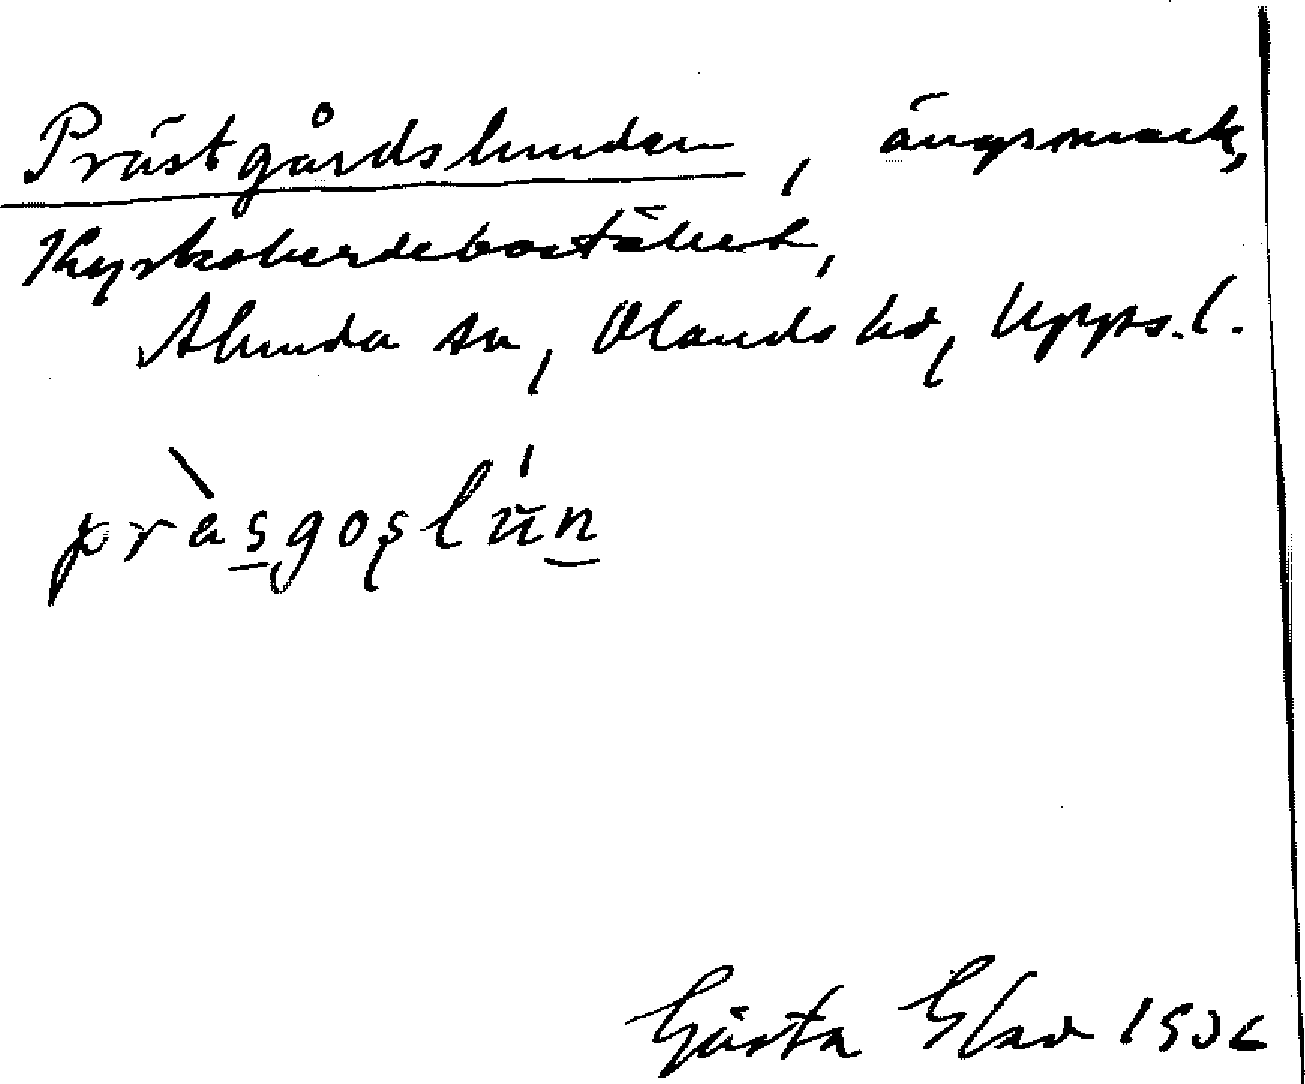 Prästgårdslunden, ängsmark,
Kyrkoherdebostället,
Alunda sn, Olands hd, Upps. l.
prạ̀sgoslún
Gösta 1936